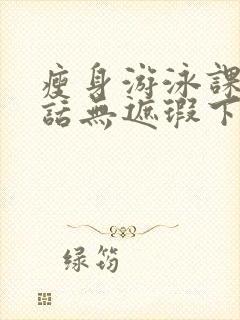 瘦身游泳課
話無遮瑕下
綠筠